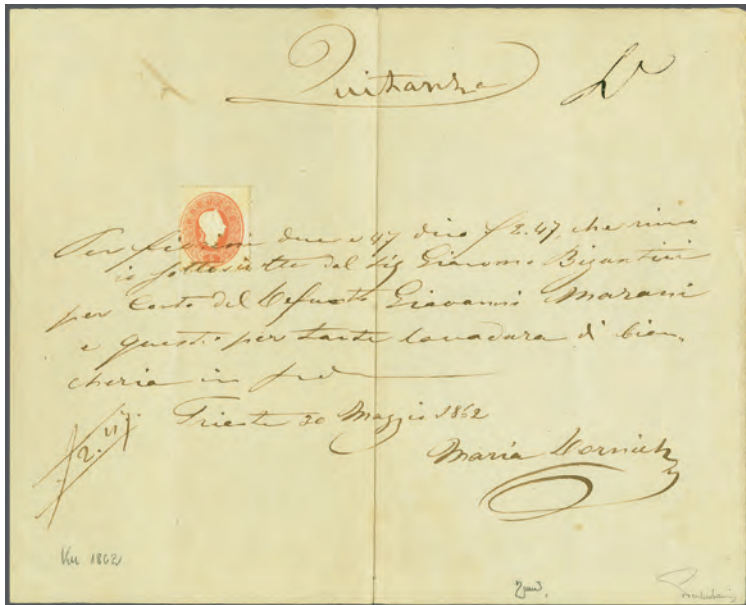 Quittanza
Per fiorini due e 47 dico f 2.47, che riceve
io sottoscritta dal Sig Giacomo Bizantini
per Conto del Defunto Giovanni Marani
e questo per tante lavadura di bian,
cheria in fede
Trieste 20 Maggio 1862
Maria
f 2.47
1862